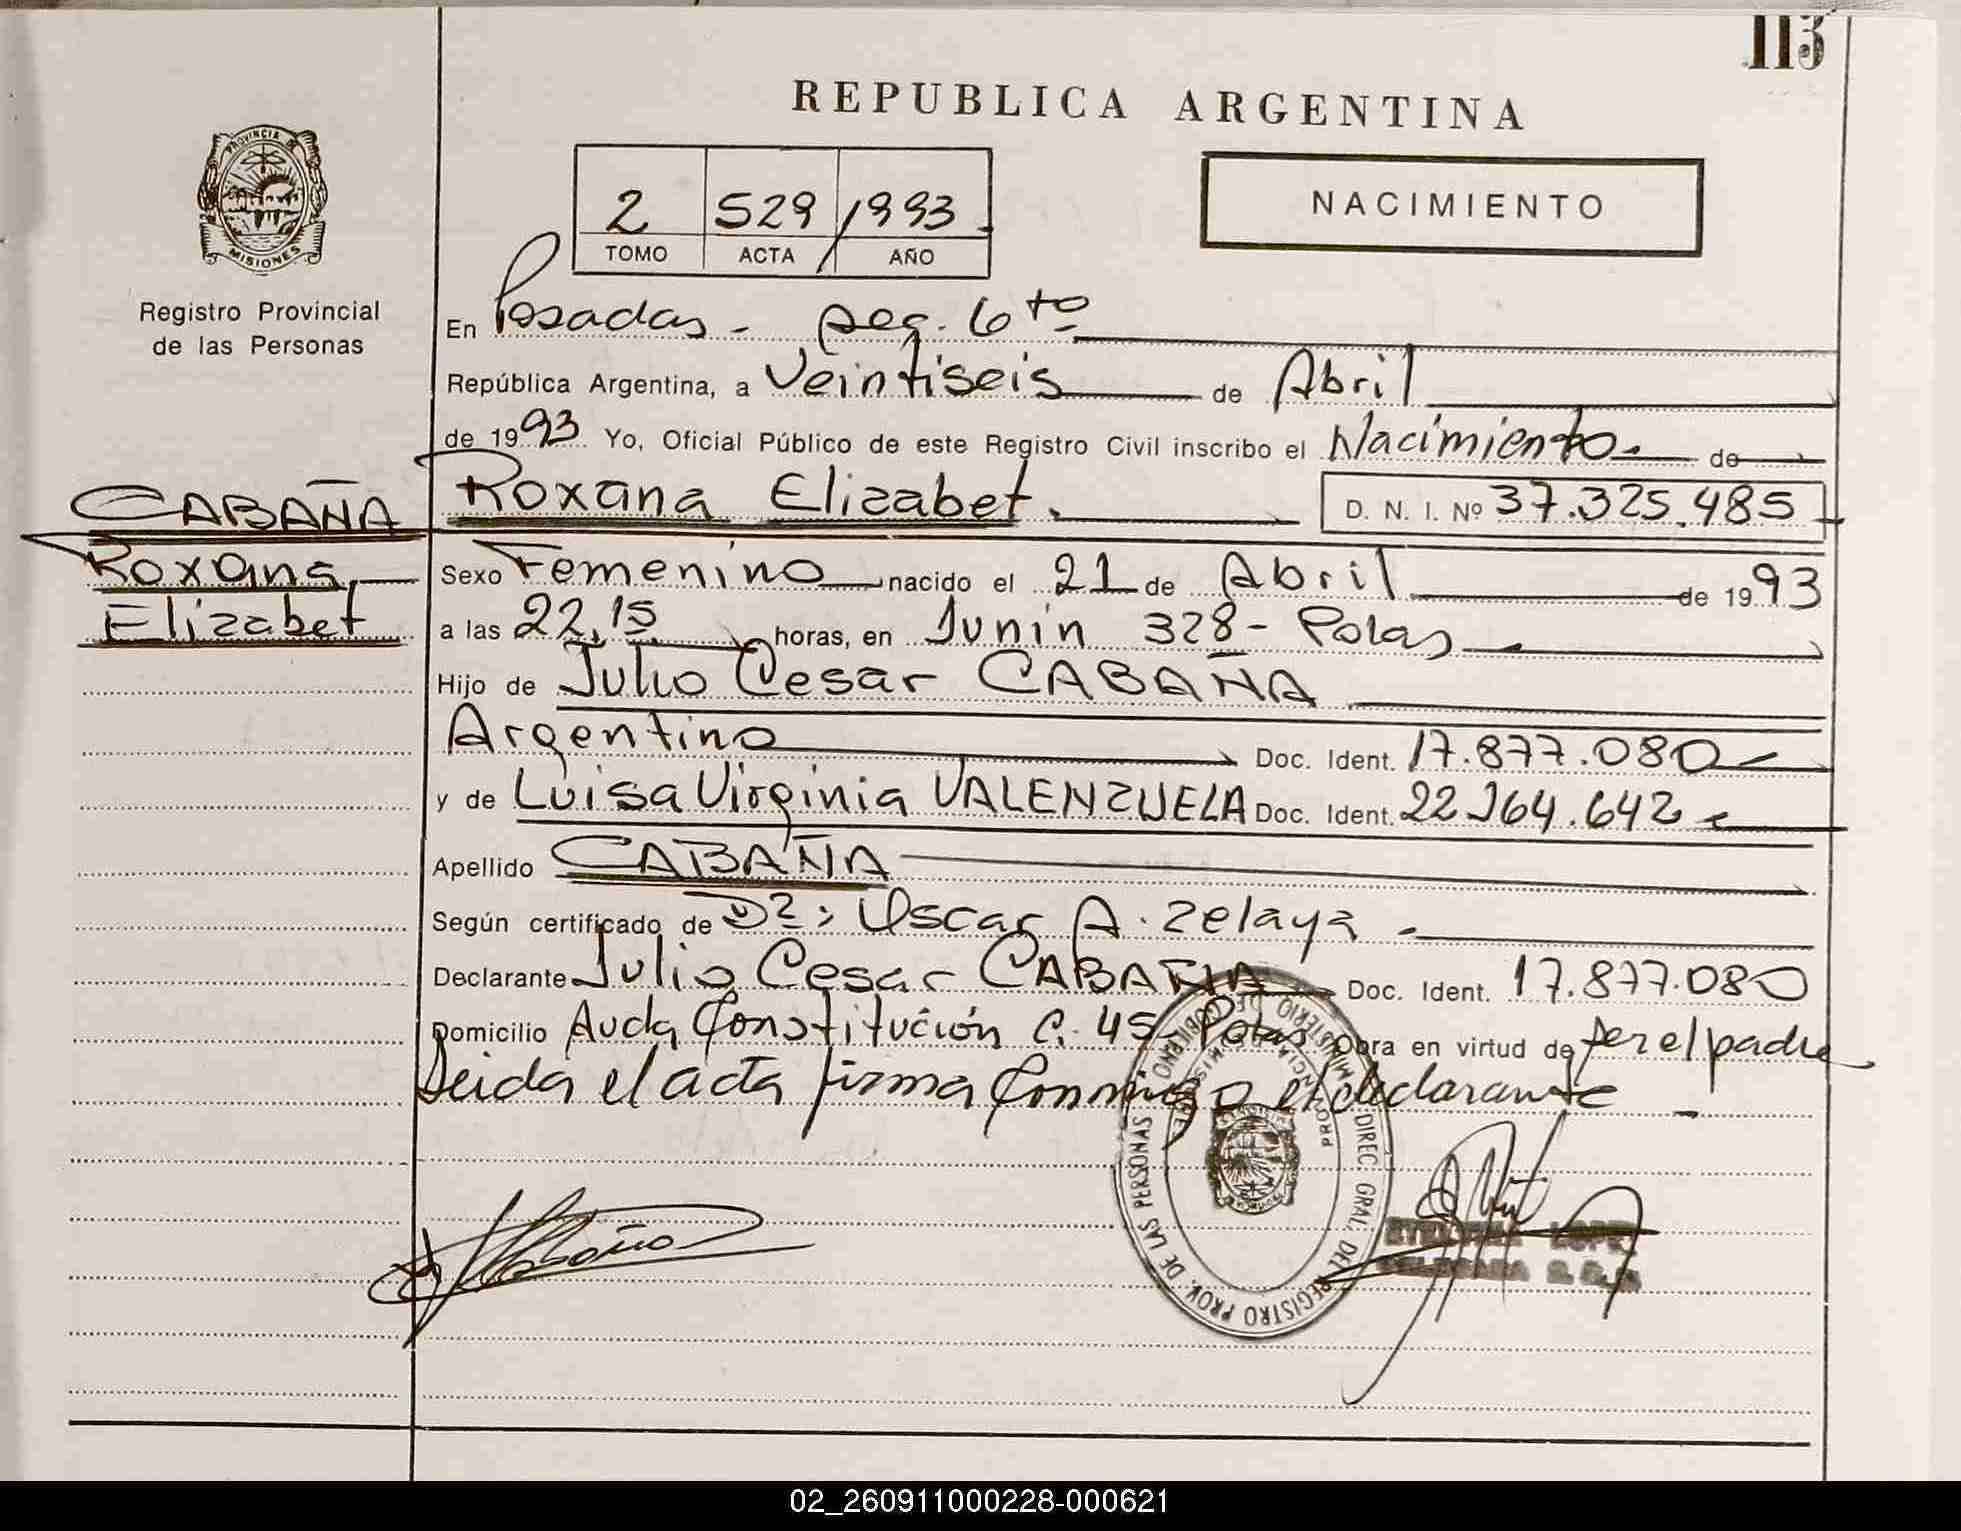 113
REPUBLICA ARGENTINA
PROVINCIA DE
MISIONES
2 529 / 1993
TOMO ACTA AÑO
NACIMIENTO
Registro Provincial
de las Personas
En Posadas - sec. 6to
República Argentina, a Veintiseis de Abril
de 1993 Yo, Oficial Público de este Registro Civil inscribo el Nacimiento de
CABAÑA
Roxana
Elizabet
Roxana Elizabet. D. N. I. Nº 37.325.485
Sexo Femenino nacido el 21 de Abril de 1993
a las 22,15 horas, en Junín 328 - Pdas
Hijo de Julio Cesar CABAÑA
Argentino Doc. Ident. 17.877.080
y de Luisa Virginia VALENZUELA Doc. Ident. 22.964.642
Apellido CABAÑA
Según certificado de Dr: Oscar A. Zelaya -
Declarante Julio Cesar CABAÑA Doc. Ident. 17.877.080
Domicilio Avda Constitución C. 45 - Pdas Obra en virtud de ser el padre
Leida el acta firma Conmigo el declarante -
MINISTERIO DE GOBIERNO
PROVINCIA DE MISIONES
DIREC. GRAL. DEL REGISTRO PROV. DE LAS PERSONAS
LOPEZ
02_260911000228-000621